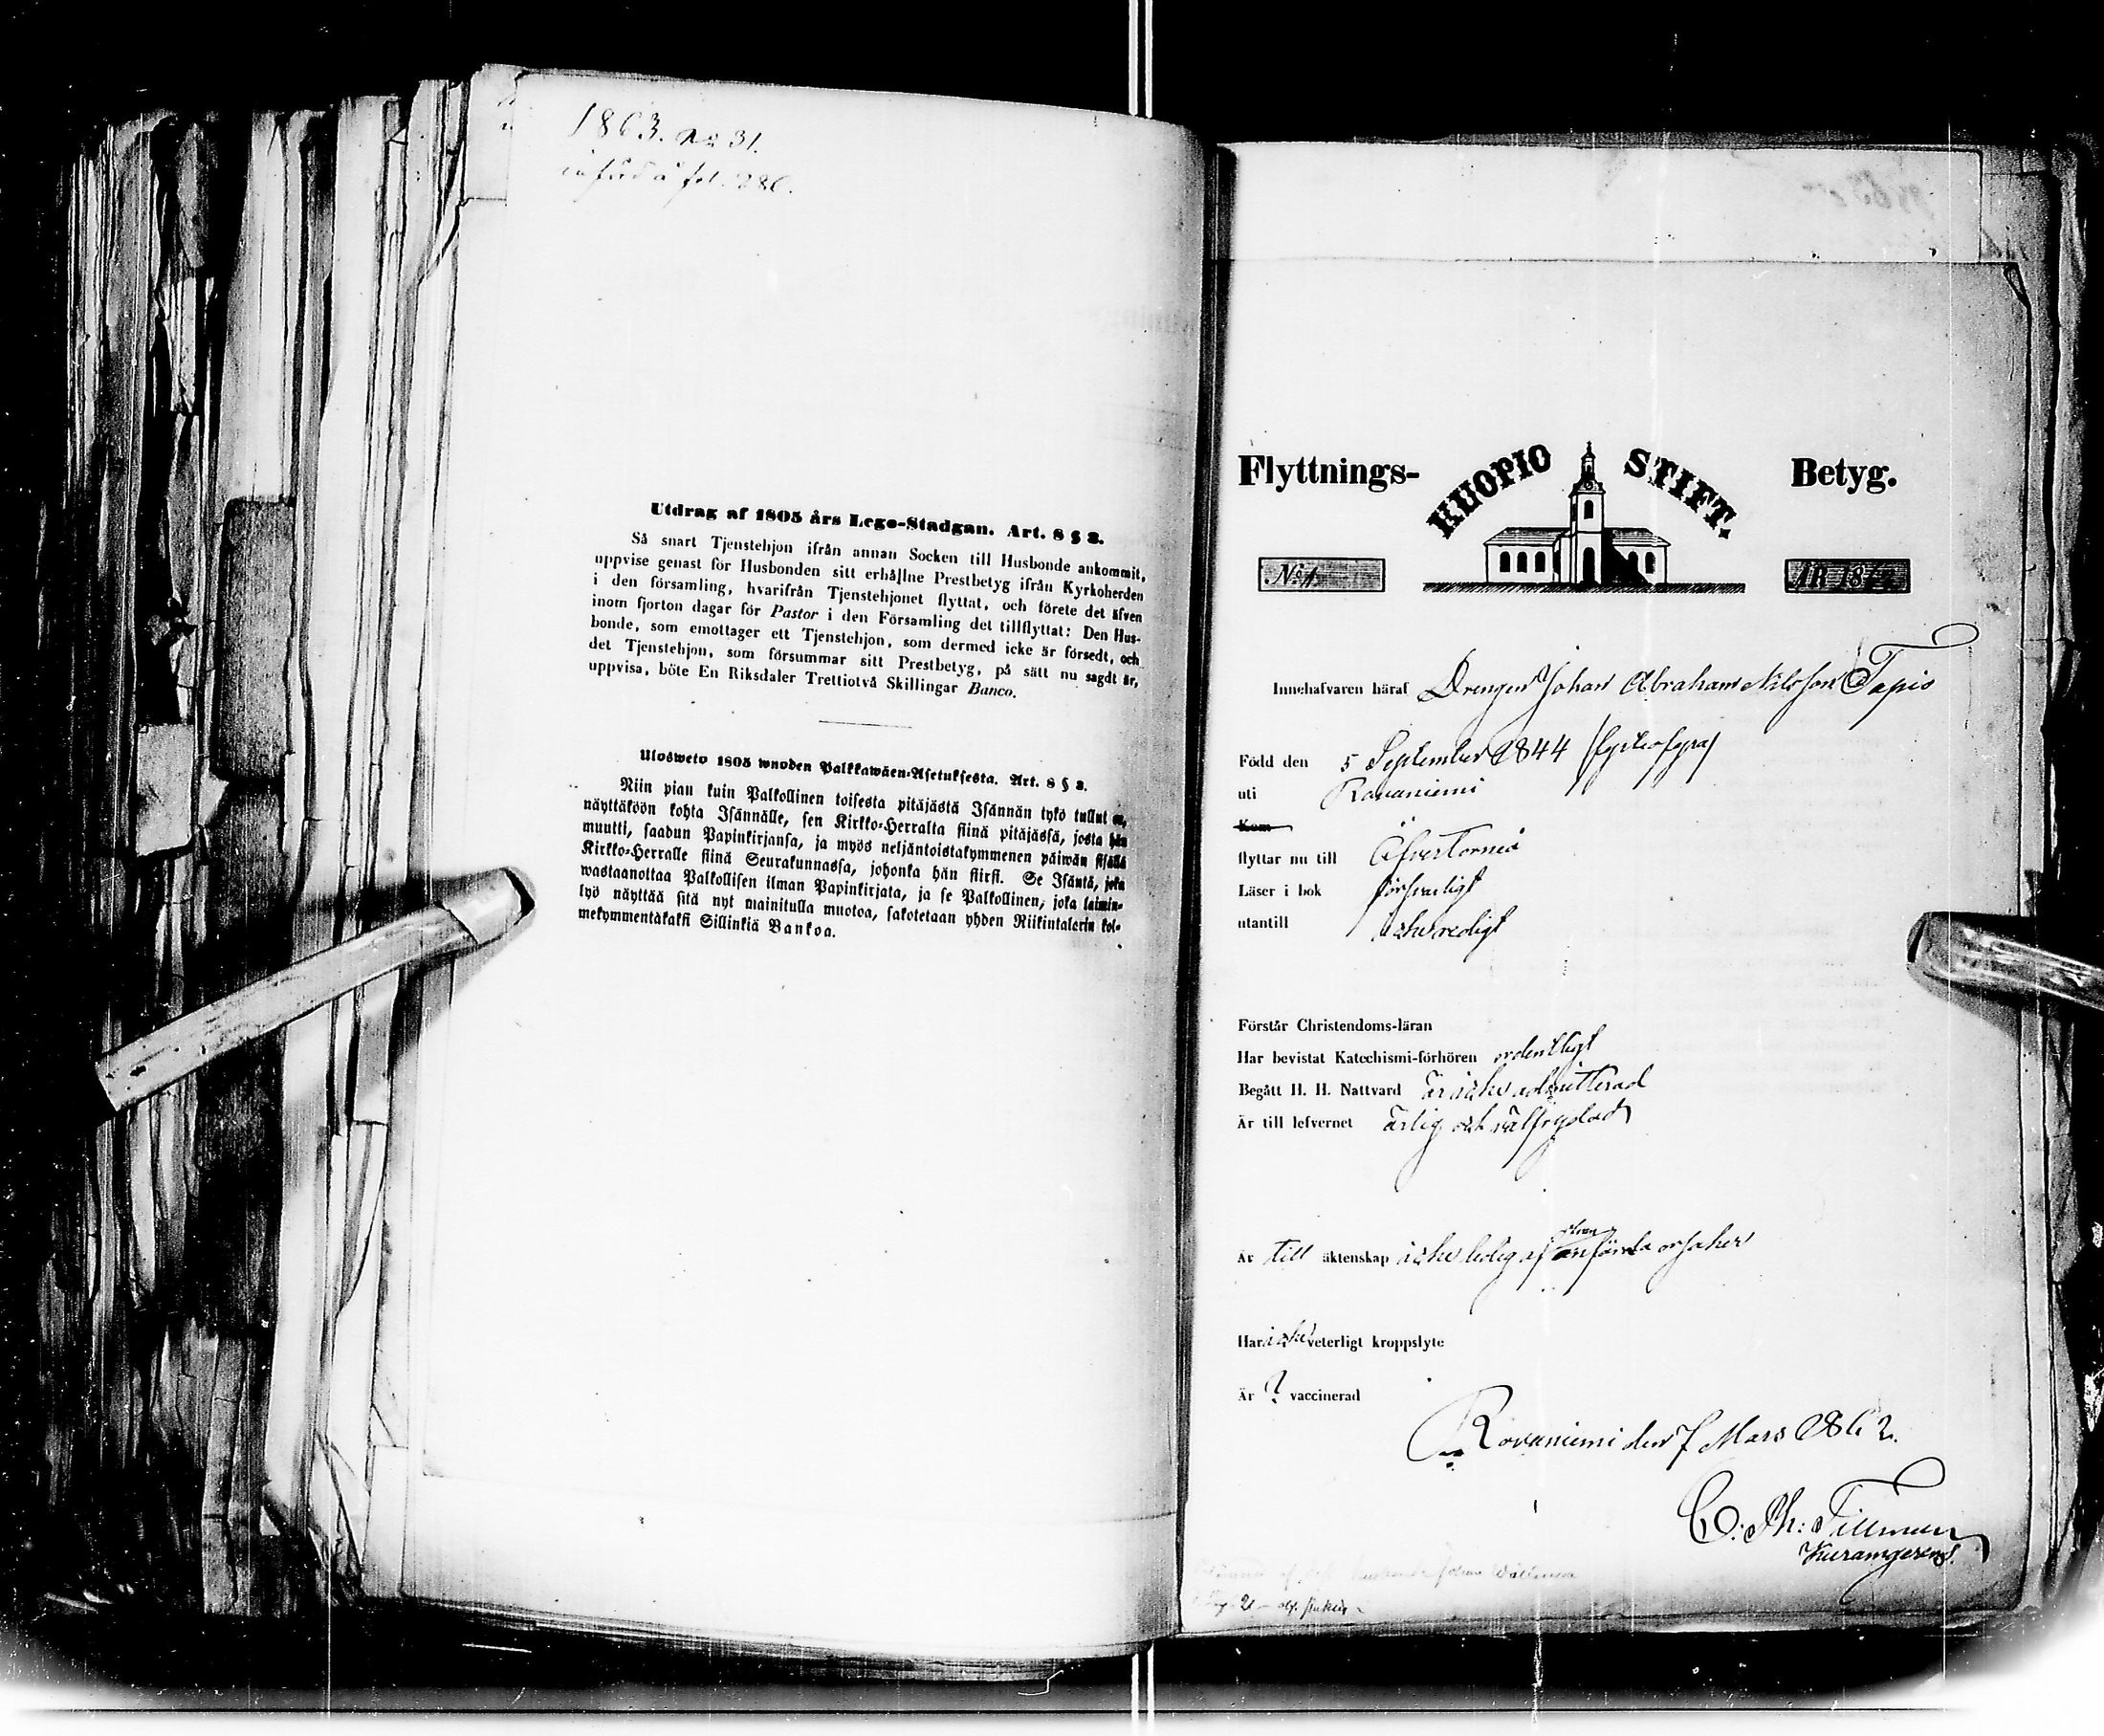 1863. No 31.
införd å fol. 286.
Utdrag af 1805 års Lego-Stadgan. Art. 8 § 3.
Så snart Tjenstehjon ifrån annan Socken till Husbonde ankommit,
uppvise genast för Husbonden sitt erhållne Prestbetyg ifrån Kyrkoherden
i den församling, hvarifrån Tjenstehjonet flyttat, och förete det äfven
inom fjorton dagar för Pastor i den Församling det tillflyttat: Den Hus-
bonde, som emottager ett Tjenstehjon, som dermed icke är försedt, och
det Tjenstehjon, som försummar sitt Prestbetyg, på sätt nu sagdt är,
uppvisa, böte En Riksdaler Trettiotvå Skillingar Banco.
Ulosweto 1805 wuoden Palkkawäen-Asetuksesta. Art. 8 § 3.
Niin pian kuin Palkollinen toisesta pitäjästä Isännän tykö tullut on,
näyttäköön kohta Isännälle, sen Kirkko-Herralta siinä pitäjässä, josta hän
muutti, saadun Papinkirjansa, ja myös neljäntoistakymmenen päiwän sisällä
Kirkko-Herralle siinä Seurakunnassa, johonka hän siirsi. Se Isäntä, joka
wastaanottaa Palkollisen ilman Papinkirjata, ja se Palkollinen, joka laimin-
lyö näyttää sitä nyt mainitulla muotoa, sakotetaan yhden Riikintalarin kol-
mekymmentäkaksi Sillinkiä Bankoa.
Flyttnings- KUOPIO STIFT. Betyg.
No 1 ÅR 186
Innehafvaren häraf Drengen Johan Abraham Nilsson Tapio
Född den 5 September 1844 (fyratiofyra)
uti Rovaniemi
Kom
flyttar nu till Öfver Torneå
Läser i bok försvarligt
utantill icke redigt
Förstår Christendoms-läran
Har bevistat Katechismi-förhören ordentligt
Begått H. H. Nattvard är icke admitterad
Är till lefvernet ärlig och välfrejdad
Är till äktenskap icke ledig af ofvan anförda orsaker
Har icke veterligt kroppslyte
Är ? vaccinerad
Rovaniemi den 7 Mars 1862.
C. Ph: Tillman